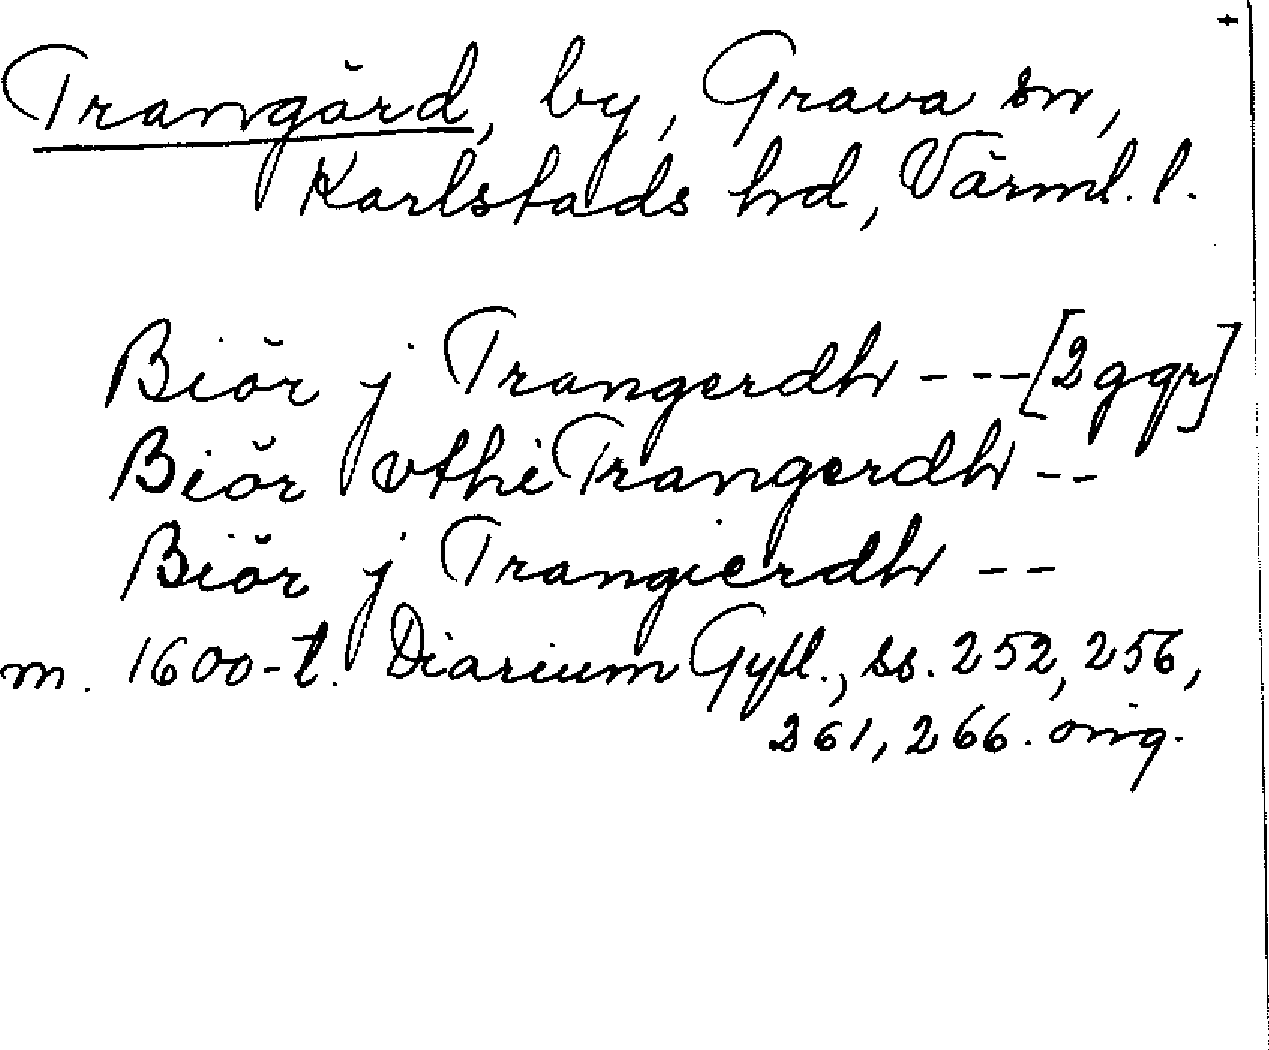 +
Trangärd, by, Grava sn,
Karlstads hd, Värml. l.
Biör j Trangerdh --- [2 ggr]
Biör vthi Trangerdh --
Biör j Trangierdh --
m. 1600-t. Diarium Gyll., ss. 252, 256,
261, 266. orig.